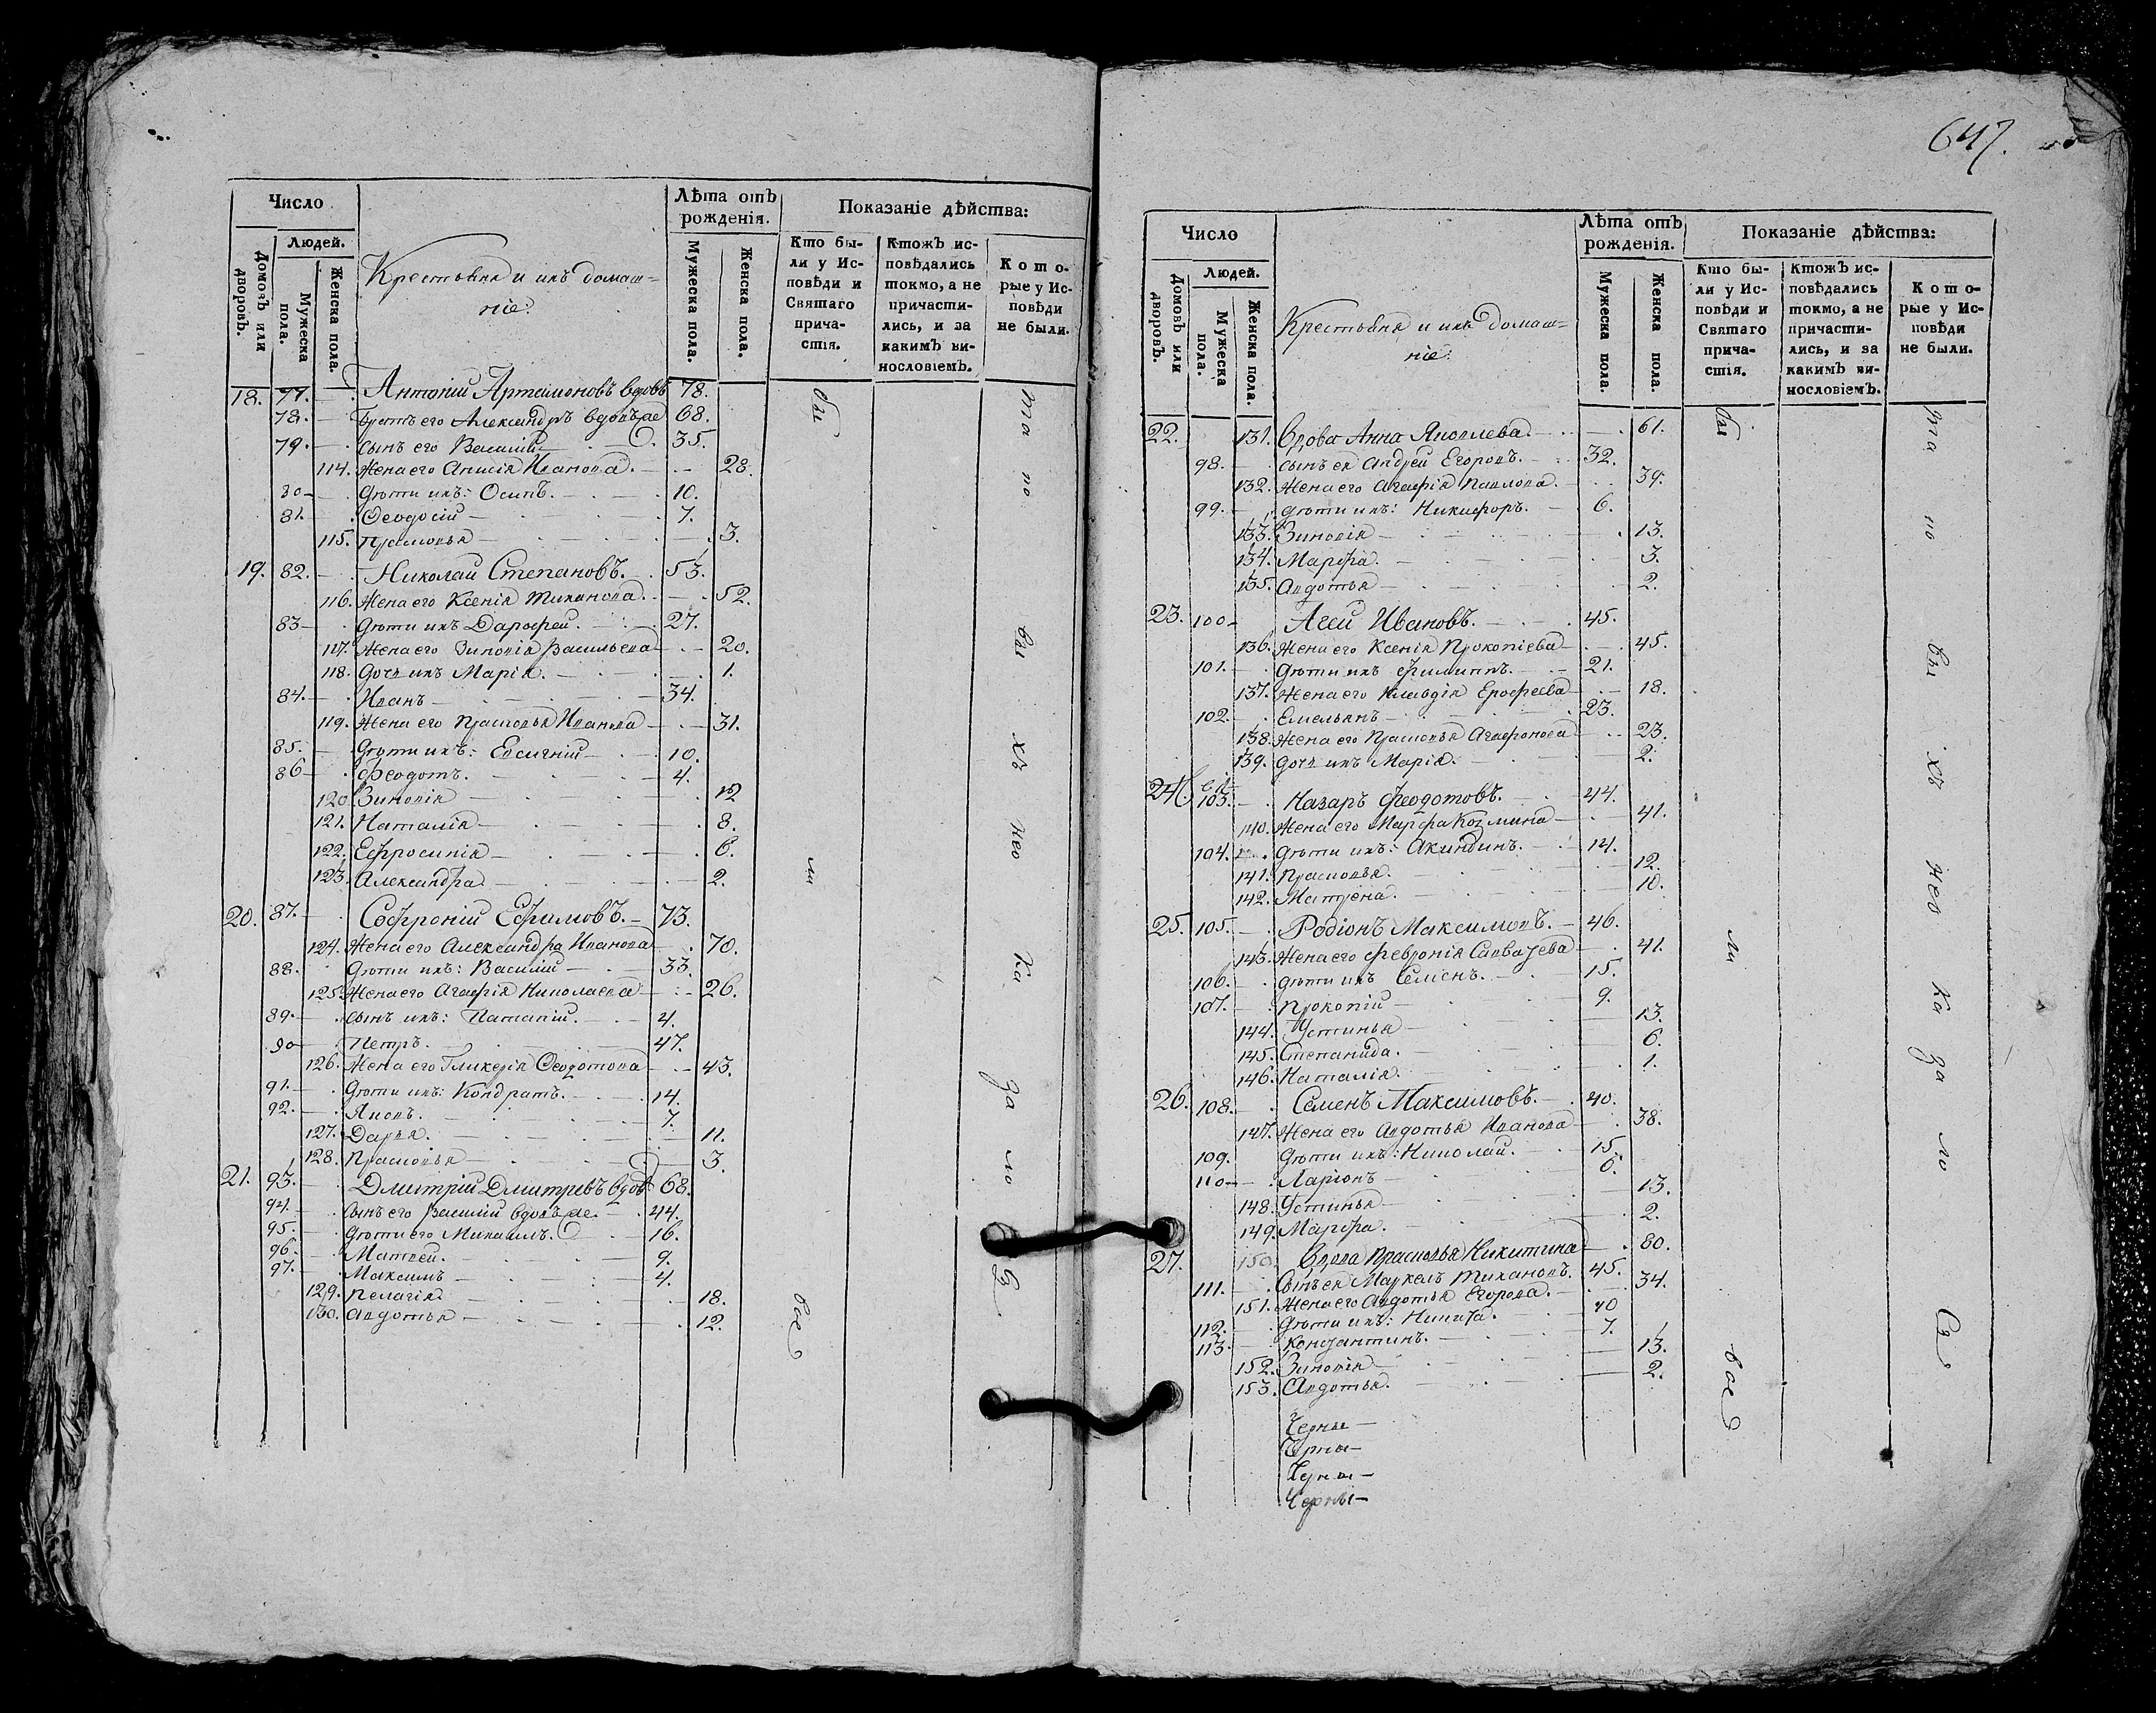 Число
Лѣта отъ рожденія.
Показаніе дѣйства:
Домовъ или дворовъ.
Людей.
Мужеска пола.
Женска пола.
Крестьяня и ихъ домаш=
ніе:
Мужеска пола.
Женска пола.
Кто бы-
ли у Ис-
повѣди и
Святаго
прича-
стія.
Ктожъ ис-
повѣдались
токмо, а не
причасти-
лись, и за
какимъ ви-
нословіемъ.
Кото-
рые у Ис-
повѣди
не были.
18. 77. Антоній Артамоновъ вдовъ 78.
78. Братъ его Александръ вдовъ же 68.
79. Сынъ его Василій 35.
114. Жена его Анисія Иванова. 28.
80 Дѣти ихъ: Осипъ. 10.
81. Ѳеодосій 7.
115. Прасковья 3.
19. 82. Николай Степановъ. 53.
116. Жена его Ксенія Тиханова. 52.
83 Дѣти ихъ Дарофей. 27.
117. Жена его Зиновія Васильева 20.
118. Дочь ихъ Марія. 1.
84. Иванъ 34.
119. Жена его Прасковья Иванова 31.
85. Дѣти ихъ: Евсигній 10.
86 Феодотъ. 4.
120. Зиновія 12
121. Наталія 8.
122. Ефросинія 6.
123. Александра. 2.
20. 87. Софроній Ефимовъ. 73.
124. Жена его Александра Иванова 70.
88. Дѣти ихъ: Василій 33.
125. Жена его Агафія Николаева 26.
89. Сынъ ихъ: Патапій. 4.
90 Петръ. 47.
126. Жена его Гликерія Ѳеодотова 43.
91. Дѣти ихъ: Кондратъ. 14.
92. Яковъ. 7.
127. Дарья. 11.
128. Прасковья 3.
21. 93. Дмитрій Дмитревъ вдовъ 68.
94. Сынъ его Василій вдовъ же. 44.
95. Дѣти его Михаилъ. 16.
96. Матвей. 9.
97. Максимъ 4.
129. Пелагія. 18.
130. Авдотья 12.
бы
ли
все
та
ко
вы
хъ
нео
ка
за
ло
сь
647.
Число
Лѣта отъ рожденія.
Показаніе дѣйства:
Домовъ или дворовъ.
Людей.
Мужеска пола.
Женска пола.
Крестьяня и ихъ домаш=
ніе:
Мужеска пола.
Женска пола.
Кто бы-
ли у Ис-
повѣди и
Святаго
прича-
стія.
Ктожъ ис-
повѣдались
токмо, а не
причасти-
лись, и за
какимъ ви-
нословіемъ.
Кото-
рые у Ис-
повѣди
не были.
22. 131. Вдова Анна Яковлева. 61.
98. Сынъ ея Андрей Егоровъ. 32.
132. Жена его Агафія Павлова. 39.
99. Дѣти ихъ: Никифоръ. 6.
133. Зиновія 13.
134. Марфа. 3.
135. Авдотья 2.
23. 100 Агей Ивановъ. 45.
136. Жена его Ксенія Прокопіева 45.
101. Дѣти ихъ Филиппъ. 21.
137. Жена его Клавдія Ерофеева 18.
102. Емельянъ 23.
138. Жена его Прасковья Агафонова 23.
139. Дочь ихъ Марія. 2.
24. 103. Назаръ Феодотовъ. 44.
140. Жена его Марфа Козмина 41.
104. Дѣти ихъ: Акиндинъ. 14.
141. Прасковья. 12.
142. Матрена. 10.
25. 105. Родіонъ Максимовъ. 46.
143. Жена его Февронія Савватева 41.
106. Дѣти ихъ Семенъ. 15.
107. Прокопій 9.
144. Устинья 13.
145. Степанида. 6.
146. Наталія. 1.
26. 108. Семенъ Максимовъ. 40.
147. Жена его Авдотья Иванова 38.
109. Дѣти ихъ: Николай. 15.
110 Ларіонъ 6.
148. Устинья 13.
149. Марфа. 2.
27. 150. Вдова Прасковья Никитина 80.
111. Сынъ ея Маркелъ Тихановъ. 45.
151. Жена его Авдотья Егорова. 34.
112. Дѣти ихъ: Никита. 10
113. Константинъ. 7.
152. Зиновія 13.
153. Авдотья. 2.
бы
ли
все
та
ко
вы
хъ
нео
ка
за
ло
сь